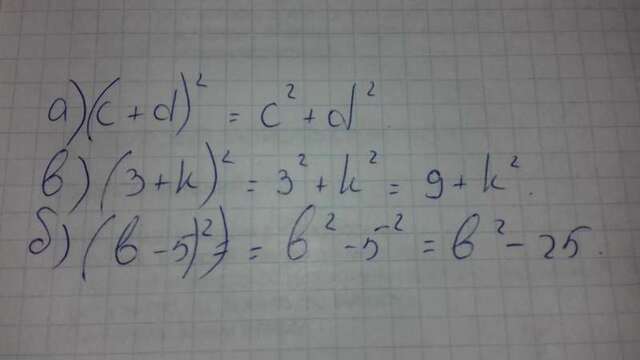 а) (c + d)² = c² + d².
в) (3 + k)² = 3² + k² = 9 + k².
б) (в - 5)²) = = в² - 5² = в² - 25.